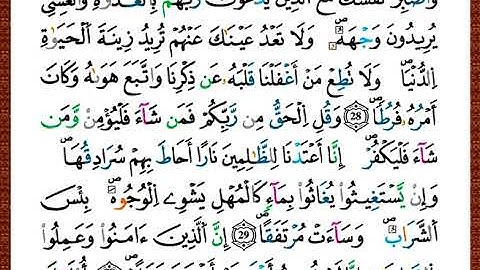 وَٱصْبِرْ نَفْسَكَ مَعَ ٱلَّذِينَ يَدْعُونَ رَبَّهُم بِٱلْغَدَوٰةِ وَٱلْعَشِىِّ
يُرِيدُونَ وَجْهَهُۥ وَلَا تَعْدُ عَيْنَاكَ عَنْهُمْ تُرِيدُ زِينَةَ ٱلْحَيَوٰةِ
ٱلدُّنْيَا وَلَا تُطِعْ مَنْ أَغْفَلْنَا قَلْبَهُۥ عَن ذِكْرِنَا وَٱتَّبَعَ هَوَىٰهُ وَكَانَ
أَمْرُهُۥ فُرُطًا 28 وَقُلِ ٱلْحَقُّ مِن رَّبِّكُمْ فَمَن شَآءَ فَلْيُؤْمِن وَمَن
شَآءَ فَلْيَكْفُرْ إِنَّا أَعْتَدْنَا لِلظَّٰلِمِينَ نَارًا أَحَاطَ بِهِمْ سُرَادِقُهَا
وَإِن يَسْتَغِيثُوا۟ يُغَاثُوا۟ بِمَآءٍ كَٱلْمُهْلِ يَشْوِى ٱلْوُجُوهَ بِئْسَ
ٱلشَّرَابُ وَسَآءَتْ مُرْتَفَقًا 29 إِنَّ ٱلَّذِينَ ءَامَنُوا۟ وَعَمِلُوا۟